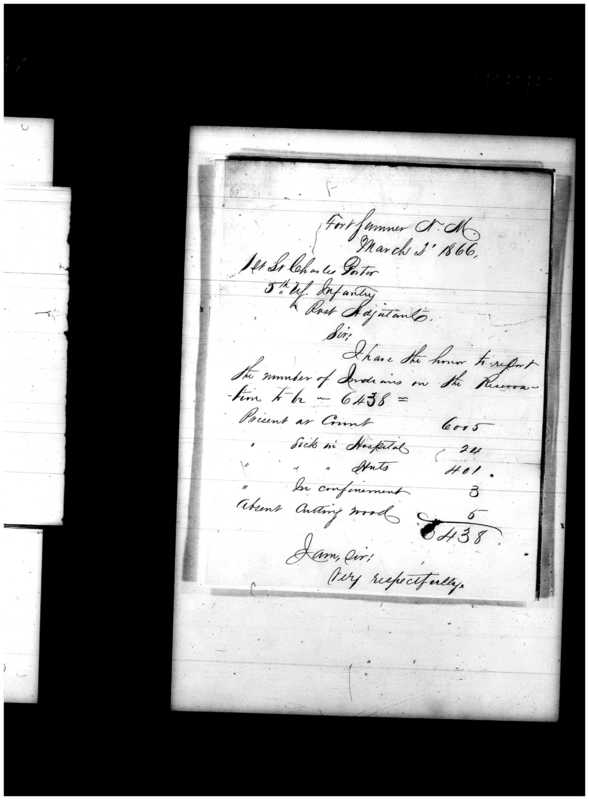 Fort Sumner N. M.
March 2' 1866,
1st Lt Charles Porter
5th U.S. Infantry
Post Adjutant.
Sir;
I have the honor to report
the number of Indians on the Reserva-
-tion to be - 6438 =
Present at Count 6005
" Sick in Hospital 24
" " " Huts 401.
" In confinement 3
Absent Cutting wood 5
6438.
I am, Sir;
Very respectfully.